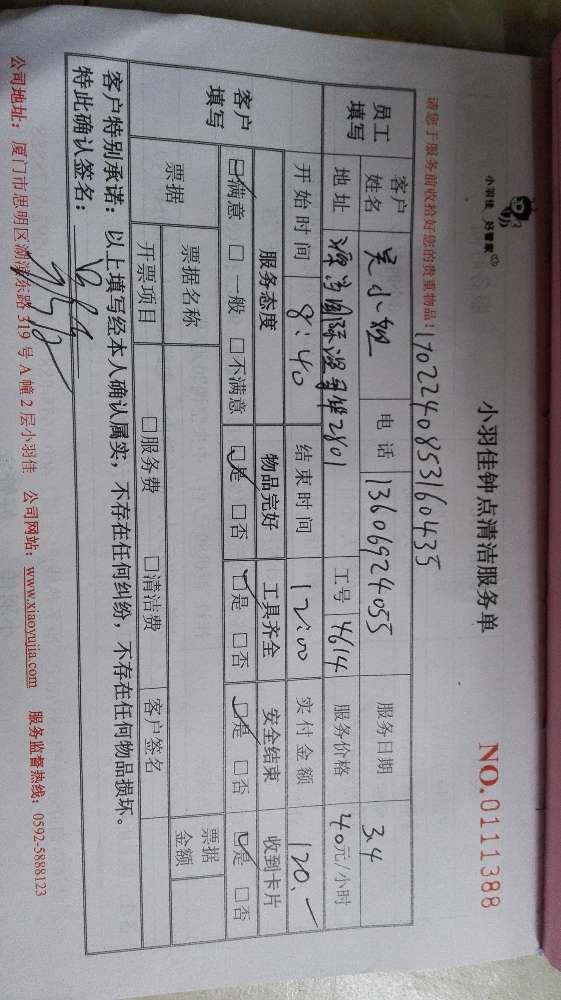 小羽佳 好管家
小羽佳钟点清洁服务单
NO.0111388
请您于服务前收拾好您的贵重物品！
1702240853160435
员工填写
客户姓名 吴小姐 电话 13606924055 服务日期 3.4
地址 源昌国际 2801 工号 4614 服务价格 40元/小时
客户填写
开始时间 8:40 结束时间 12:00 实付金额 120.一
服务态度 物品完好 工具齐全 安全结束 收到卡片
☑满意 □一般 □不满意 ☑是 □否 ☑是 □否 ☑是 □否 ☑是 □否
票据 票据名称 票据金额
开票项目 □服务费 □清洁费 客户签名
客户特别承诺：以上填写经本人确认属实，不存在任何纠纷，不存在任何物品损坏。
特此确认签名：
公司地址：厦门市思明区湖滨东路319号A幢2层小羽佳 公司网站：www.xiaoyujia.com 服务监督热线：0592-5888123